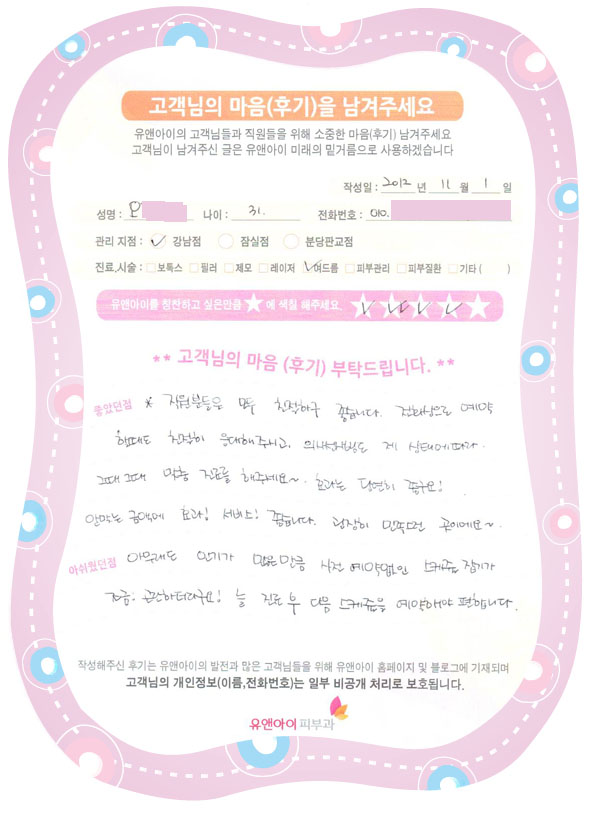 고객님의 마음(후기)을 남겨주세요
유앤아이의 고객님들과 직원들을 위해 소중한 마음(후기) 남겨주세요
고객님이 남겨주신 글은 유앤아이 미래의 밑거름으로 사용하겠습니다
작성일 : 2012 년 11 월 1 일
성명 : 오 나이 : 31. 전화번호 : 010.
관리 지점 : 강남점 잠실점 분당판교점
진료,시술 : 보톡스 필러 제모 레이저 여드름 피부관리 피부질환 기타 ( )
유앤아이를 칭찬하고 싶은만큼 ★ 에 색칠 해주세요
** 고객님의 마음 (후기) 부탁드립니다. **
좋았던점 * 직원분들은 모두 친절하구 좋습니다. 전화상으로 예약
할때도 친절히 응대해주시고, 의사선생님도 제 상태에따라
그때 그때 맞춤 진료를 해주세요~ 효과는 당연히 좋구요!
만만한 금액에 효과! 서비스! 좋습니다. 굉장히 만족스런 곳이에요~
아쉬웠던점 아무래도 인기가 많은만큼 사전 예약없인 스케줄 잡기가
조금. 곤란하더라구요! 늘 진료 후 다음 스케줄을 예약해야 편합니다.
작성해주신 후기는 유앤아이의 발전과 많은 고객님들을 위해 유앤아이 홈페이지 및 블로그에 기재되며
고객님의 개인정보(이름,전화번호)는 일부 비공개 처리로 보호됩니다.
유앤아이 피부과